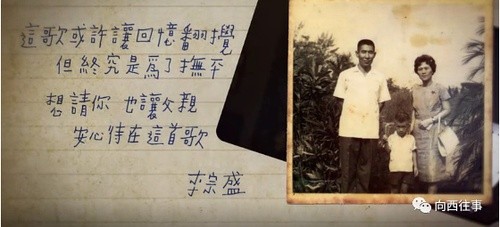 這歌或許讓回憶翻攪
但終究是為了撫平
想請你 也讓父親
安心待在這首歌
李宗盛
向西往事